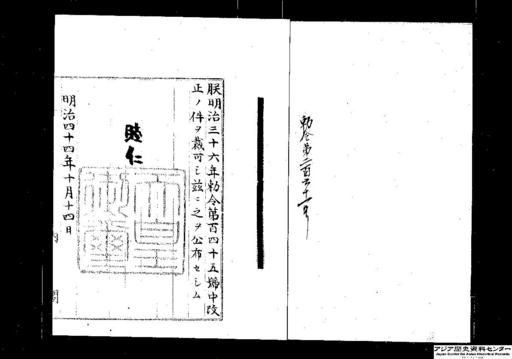 勅令第二百六十一号
朕明治三十六年勅令第百四十五號中改
正ノ件ヲ裁可シ茲ニ之ヲ公布セシム
睦仁
天皇御璽
明治四十四年十月十四日
内閣
アジア歴史資料センター
Japan Center for Asian Historical Records